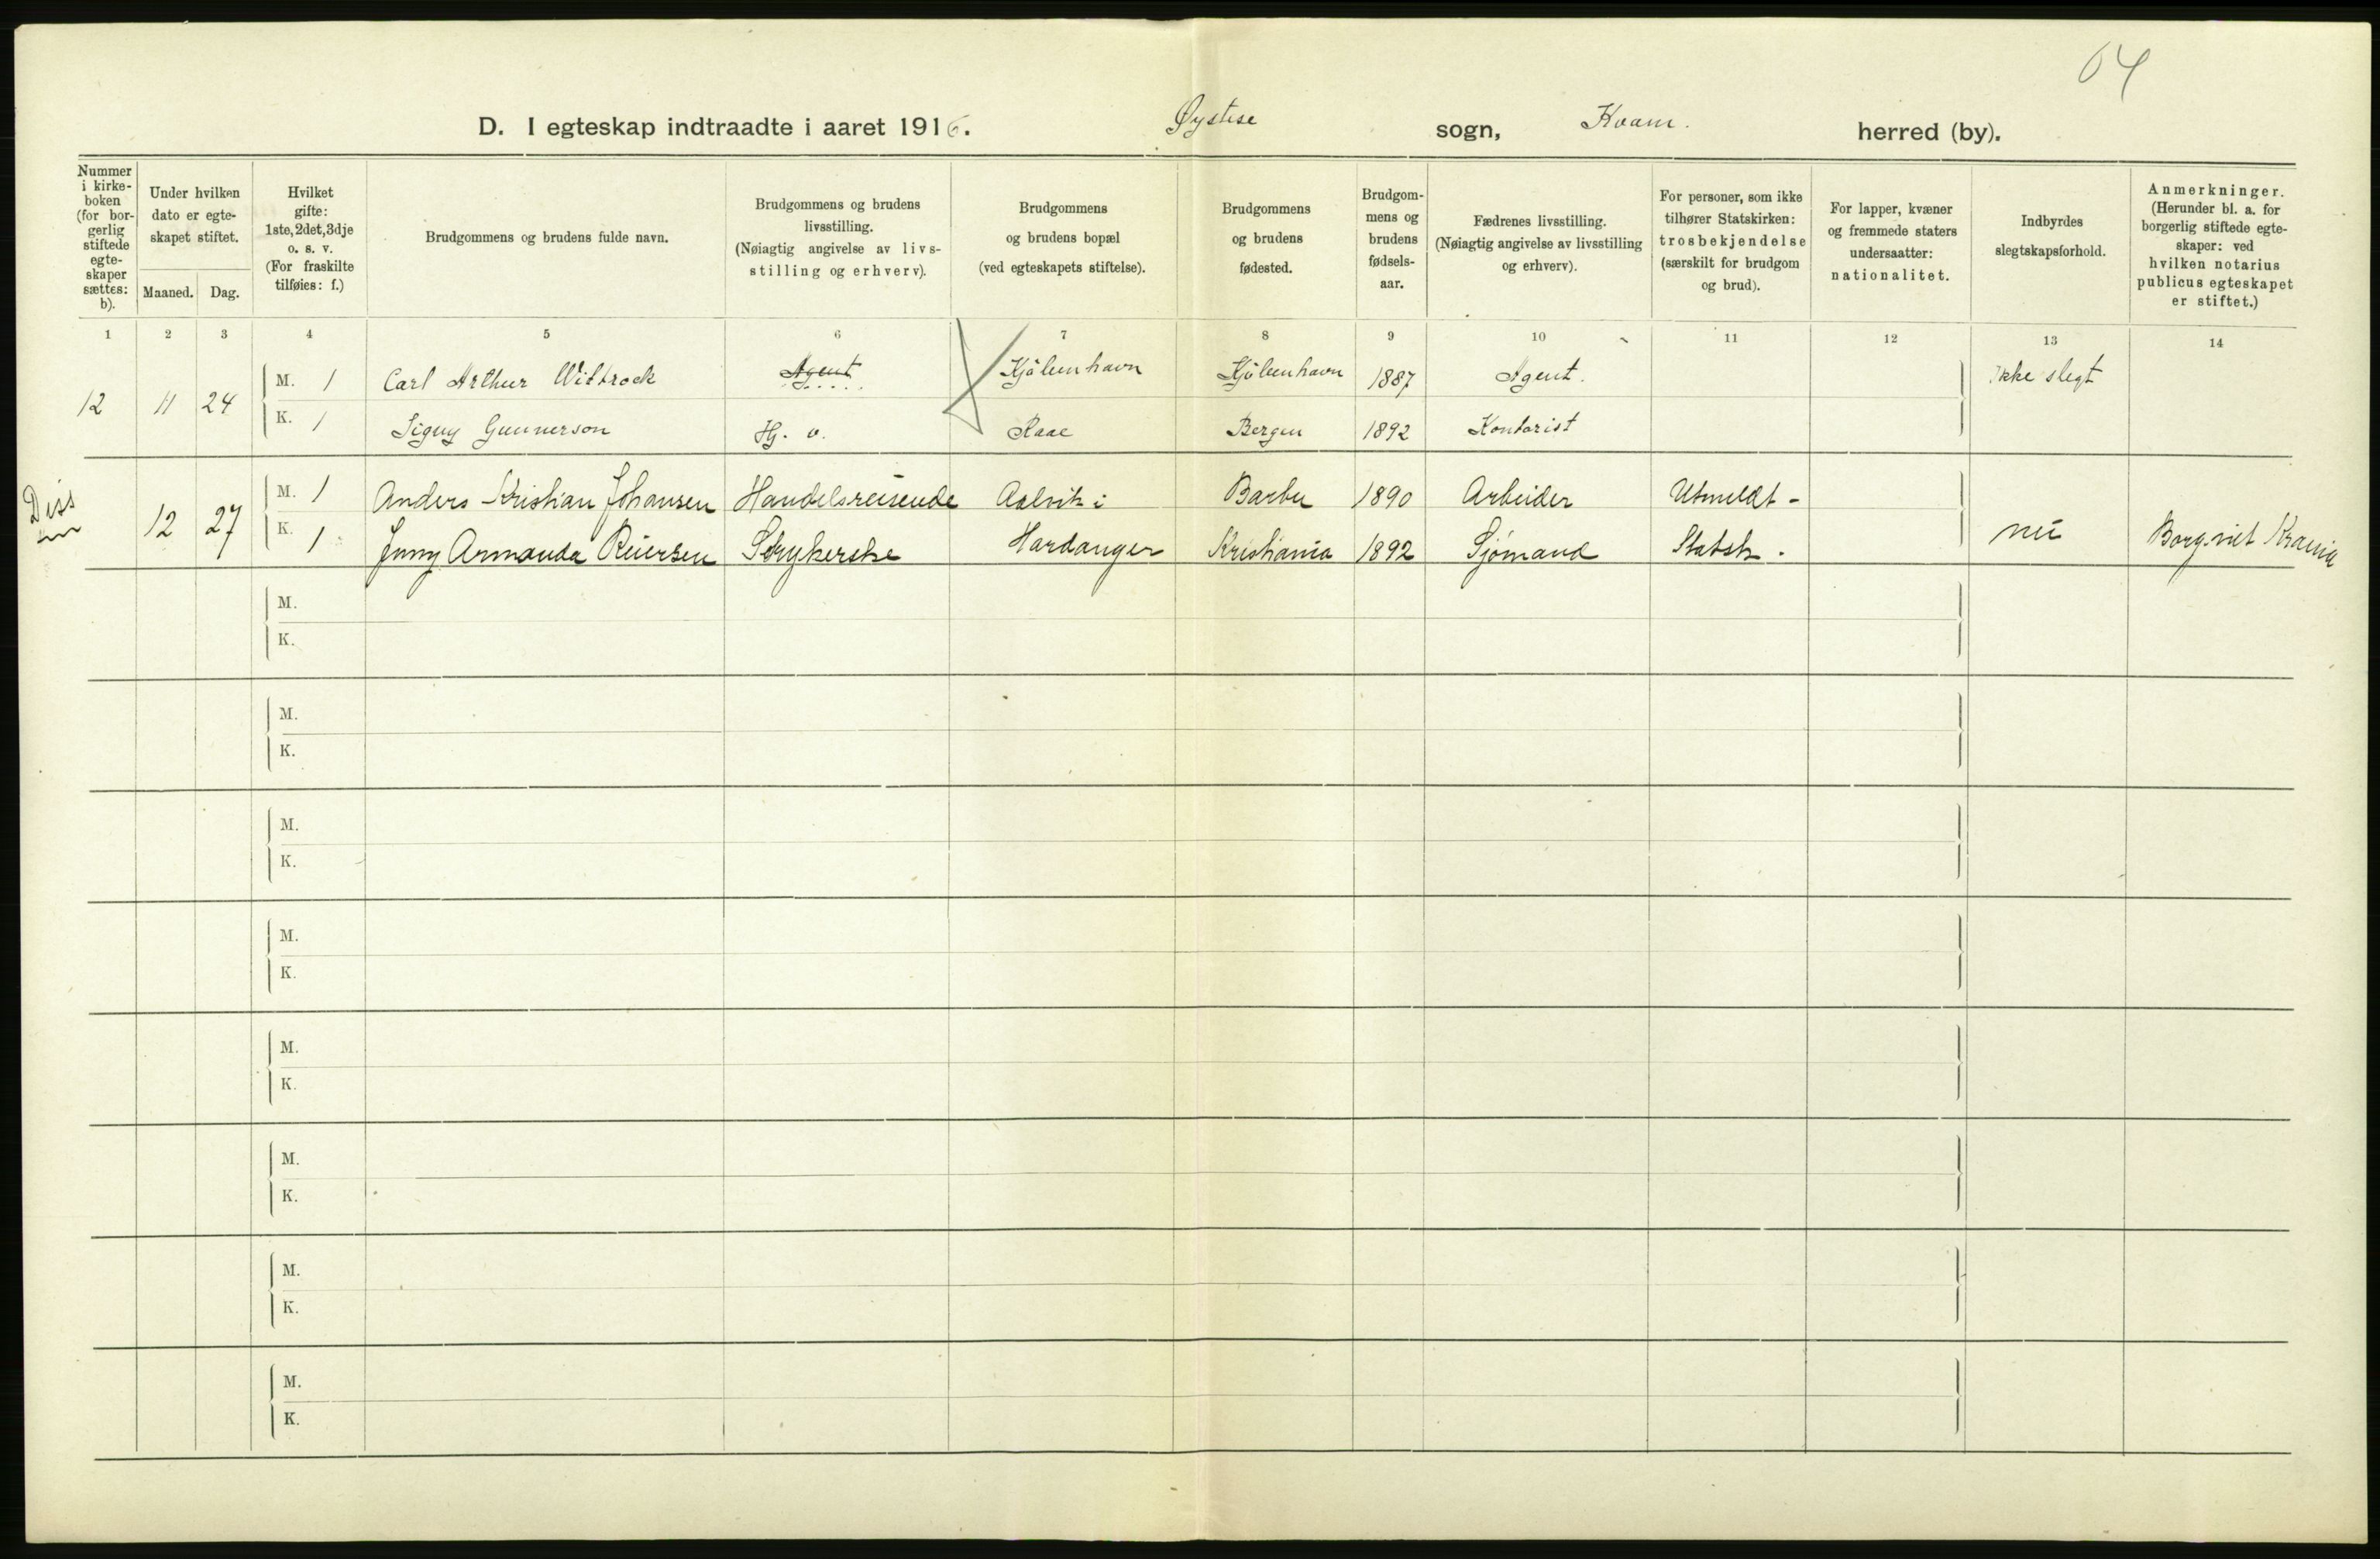 64
D. I egteskap indtraadte i aaret 1916. Øystese sogn, Kvam. herred (by).
Nummer i kirke-boken (for bor-gerlig stiftede egte-skaper sættes: b).
Under hvilken dato er egte-skapet stiftet.
Maaned. Dag.
Hvilket gifte: 1ste, 2det, 3dje o. s. v. (For fraskilte tilføies: f.)
Brudgommens og brudens fulde navn.
Brudgommens og brudens livsstilling. (Nøiagtig angivelse av livs-stilling og erhverv).
Brudgommens og brudens bopæl (ved egteskapets stiftelse).
Brudgommens og brudens fødested.
Brudgom-mens og brudens fødsels-aar.
Fædrenes livsstilling. (Nøiagtig angivelse av livsstilling og erhverv).
For personer, som ikke tilhører Statskirken: trosbekjendelse (særskilt for brudgom og brud).
For lapper, kvæner og fremmede staters undersaatter: nationalitet.
Indbyrdes slegtskapsforhold.
Anmerkninger. (Herunder bl. a. for borgerlig stiftede egte-skaper: ved hvilken notarius publicus egteskapet er stiftet.)
1 2 3 4 5 6 7 8 9 10 11 12 13 14
12 11 24 M. 1 Carl Arthur Wittrock Agent Kjöbenhavn Kjöbenhavn 1887 Agent. Ikke slegt
K. 1 Signy Gunnerson Hj. v. Raae Bergen 1892 Kontorist
Diss
12 27 M. 1 Anders Kristian Johansen Handelsreisende Aalvik i Barbu 1890 Arbeider Utmeldt -
K. 1 Jenny Armanda Reiersen Strykerske Hardanger Kristiania 1892 Sjømand Statsk. nei Borg. viet Krania
M.
K.
M.
K.
M.
K.
M.
K.
M.
K.
M.
K.
M.
K.
M.
K.